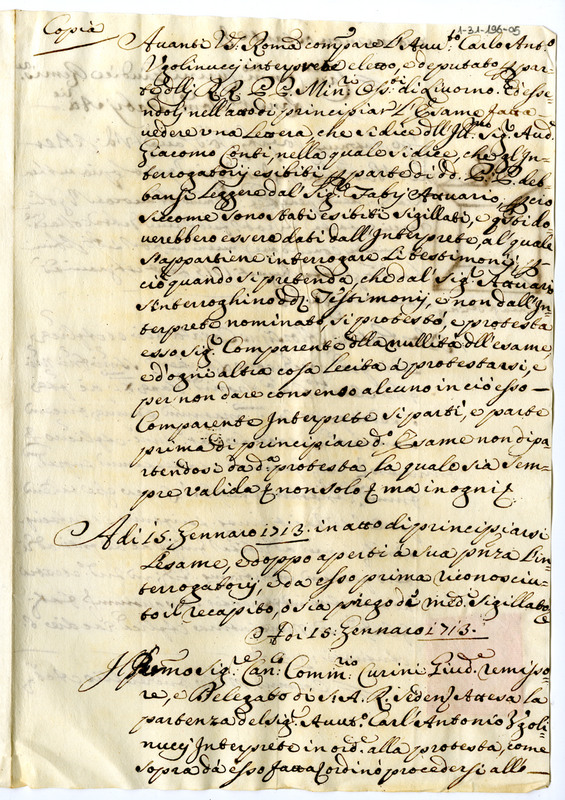 1-31-196-05
Copia
Avanti V.S. Romã compare l'Avv.to Carlo Ant.o
Ugolinucci interprete eletto, e deputato p par=
te dlli RR. P.P. Min.ri Oss.ti di Livorno. Ed esse=
ndosi nell'atto di principiar l'Esame fatta
vedere una Lettera, che si dice dll Ill.mo Sig.r Aud.
Giacomo Conti, nella quale si dice, che gl'In=
terrogatorij esibiti p parte di dd. P.P. deb=
bansi Leggere dal Sig.re Fabij Attuario, p ciò
siccome sono stati esibiti sigillati, e q.sti do=
verebbero essere dati dall'Interprete, al quale
s'appartiene interrogare li testimonij. P
ciò quando si pretenda, che dal Sig.r Attuario
s'interroghino dd. Testimonij, e non dall'In=
terprete nominato, si protestò, e protesta
esso Sig.r Comparente dlla nullità dll'esame,
e d'ogni altra cosa Lecita à protestarsi, e
per non dare consenso alcuno in ciò esso
Comparente Interprete si partì, e parte
prima di principiare d.o Esame non dipa=
rtendosi da d.a protesta, la quale sia sem=
pre valida p non solo p ma in ogni p.
A di 15. Gennaro 1713. in atto di principiarsi
l'esame, e doppo aperti à sua pñza l'in=
terrogatorij, e da esso prima riconosciu=
to il recapito, ò sia piego di med.i sigillato &c
A di 15. Gennaro 1713.
Il Rmmo Sig.re Can.co Comm.rio Curini Giud.e remisso=
re, e Delegato di S.A. R. seden.e Attesa la
partenza del Sig.r Avvt.o Carl'Antonio Ugoli=
nucci Interprete in ord.e alla protesta, come
sopra da esso fatta ordinò procedersi all'